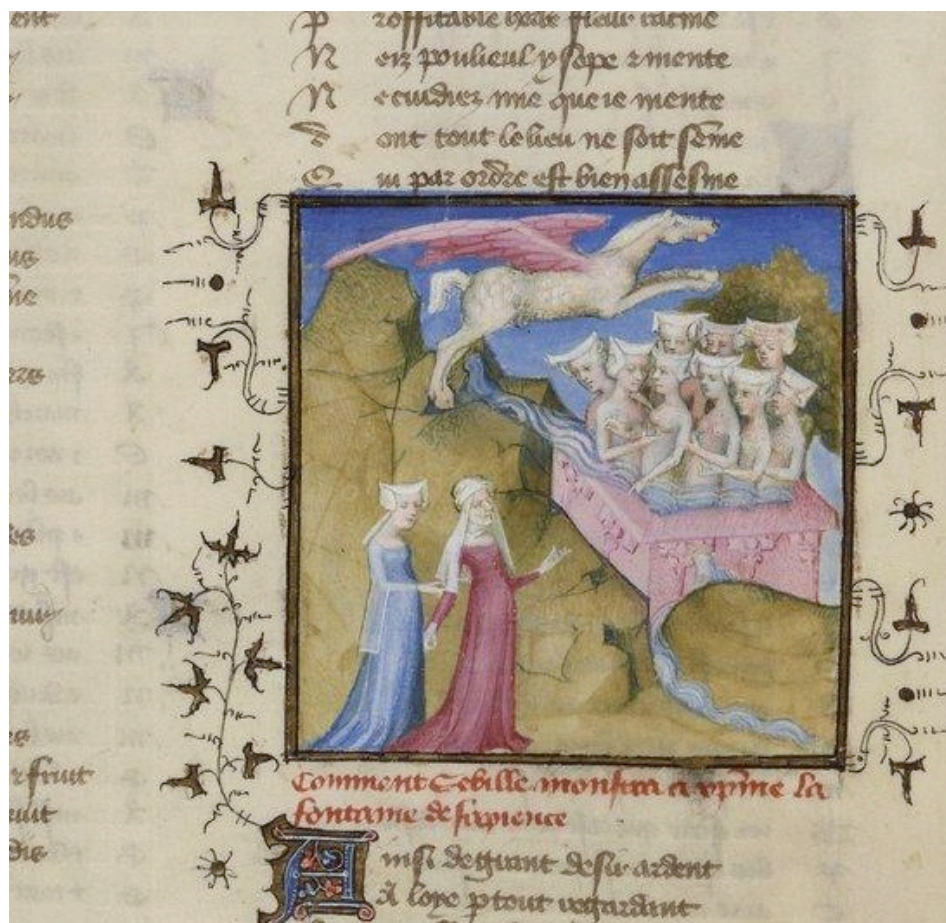 Proffitable herbe fleur racine
Neiz poulieul ysope 2 mente
Ne cuidiez mie que ie mente
ont tout le lieu ne soit seme
ui par ordre est bien assesme
Comment Sebille monstra a xpine la
fontaine de sapience
Ainsi de grant desir ardent
Aloye ptout regardant
ent
ndus
us
r fruit
dis